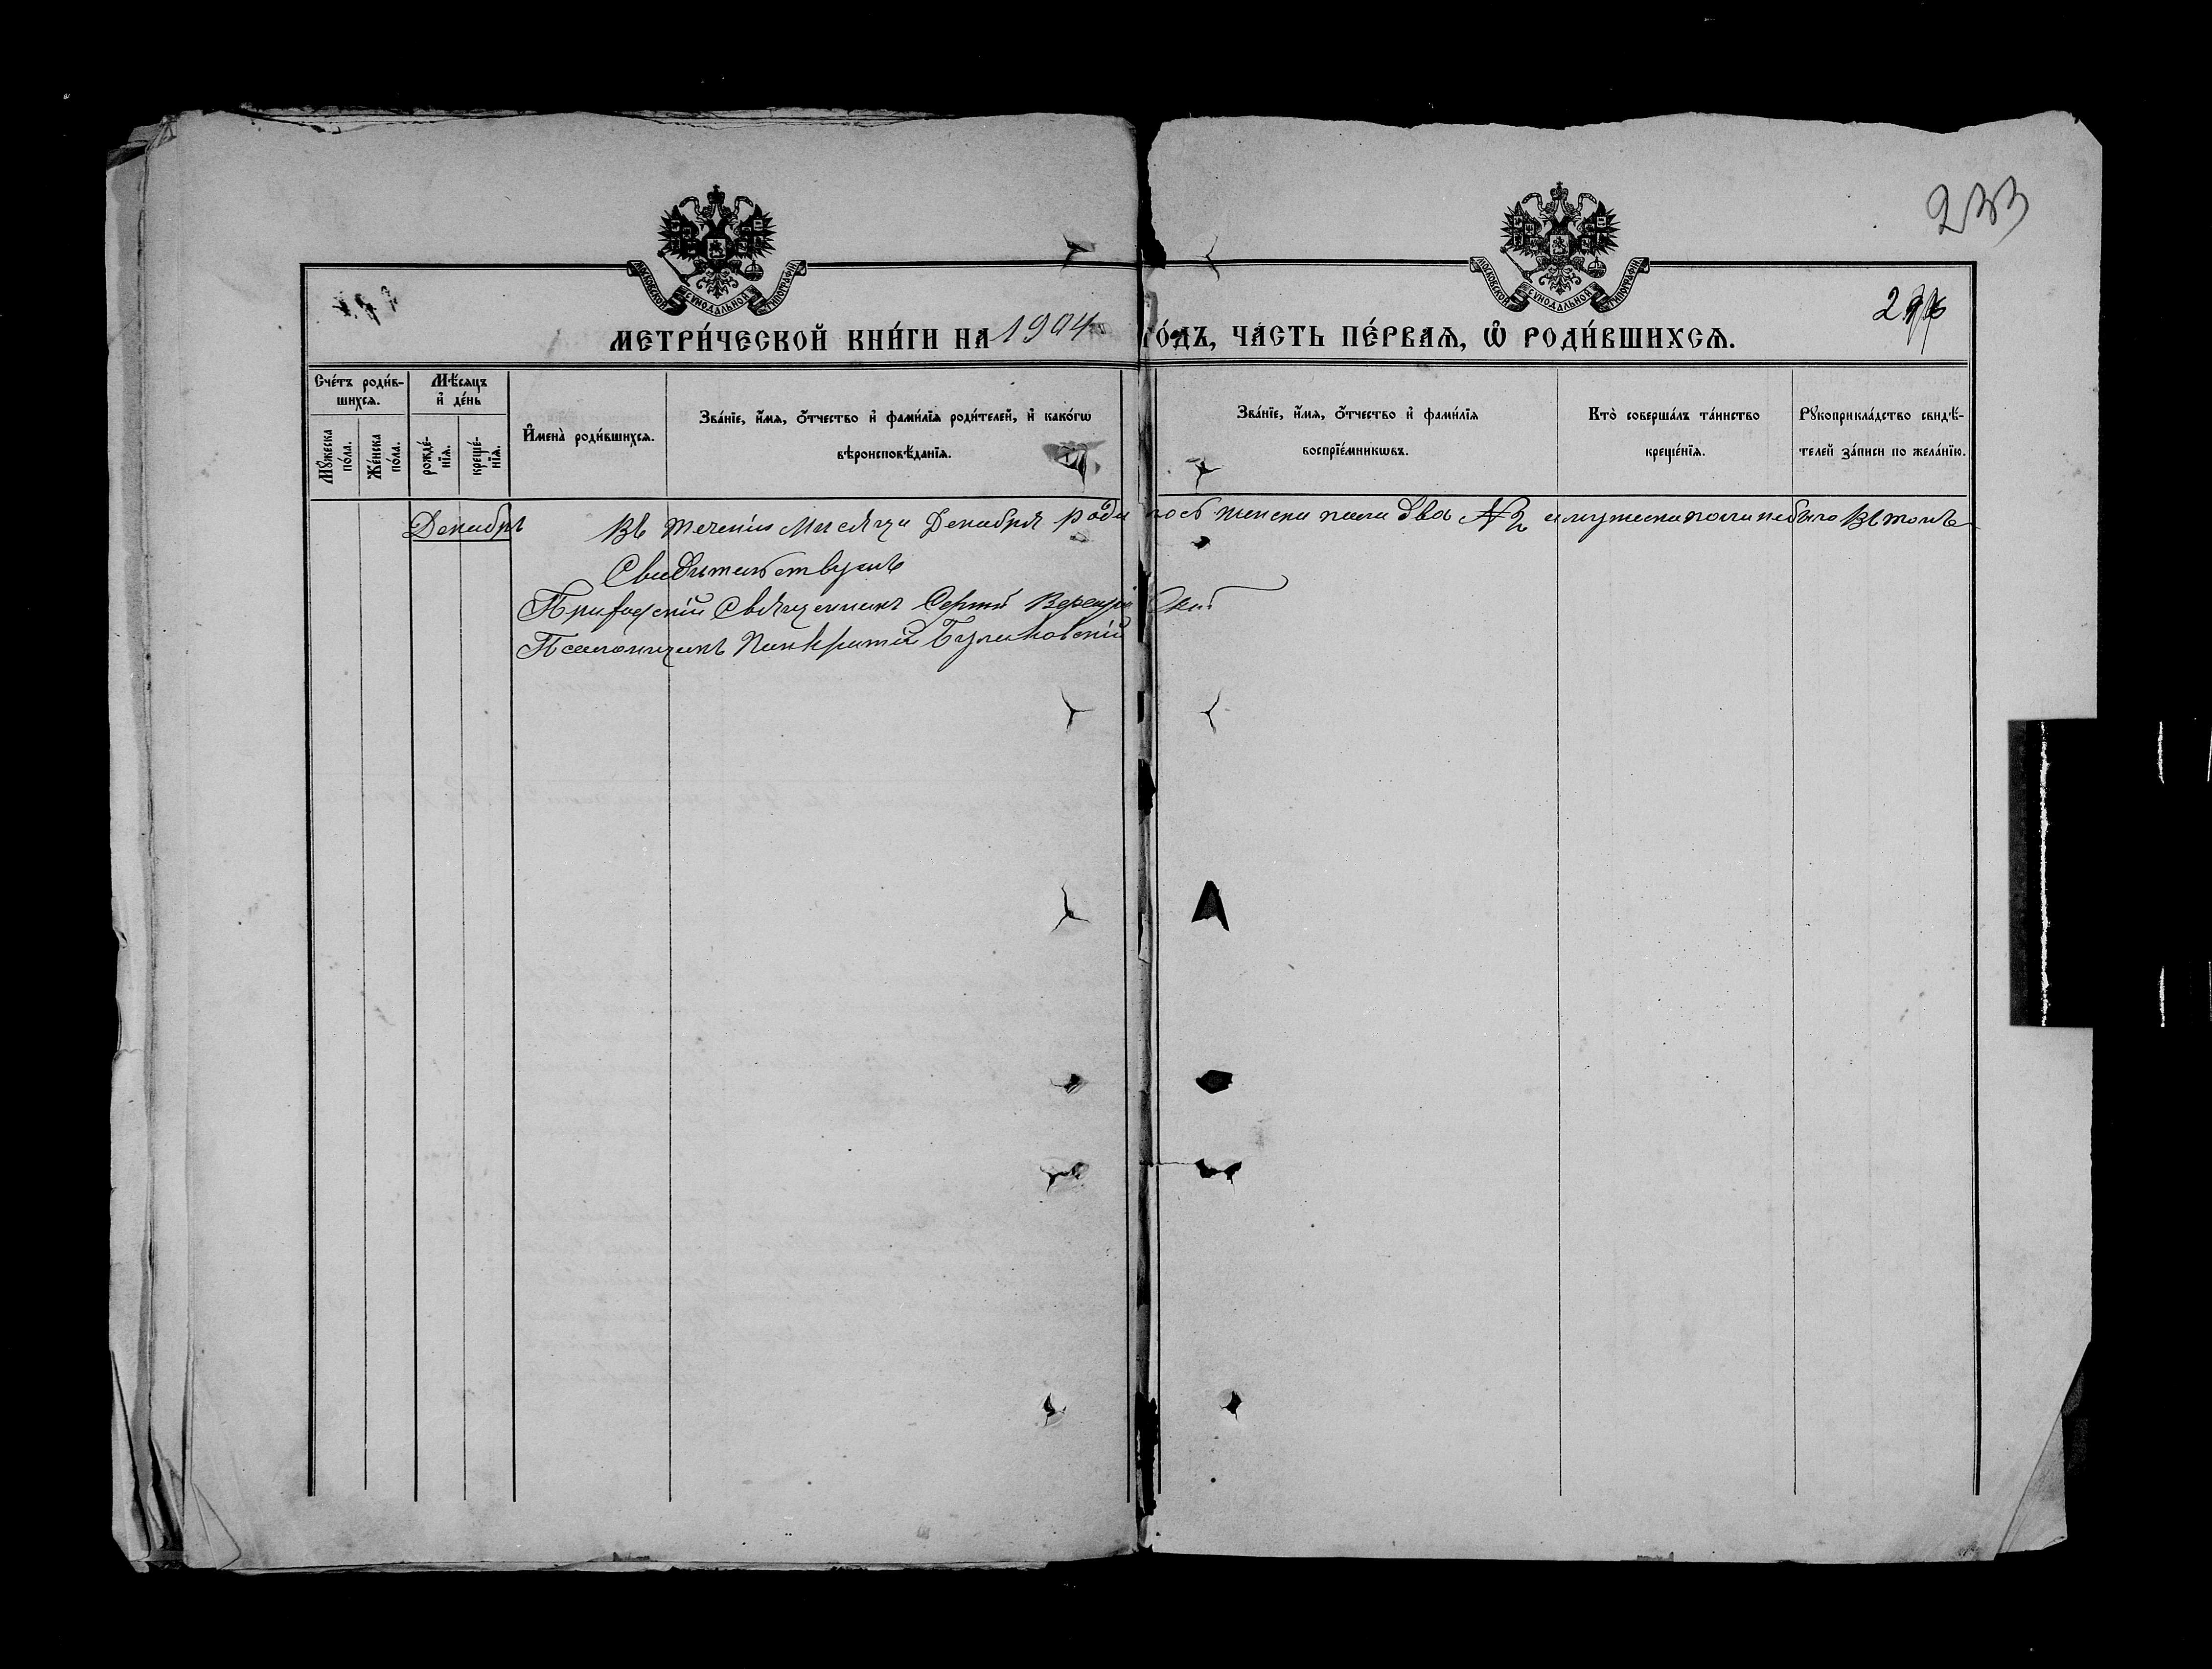 233
МОСКОВСКОЙ СУНОДАЛЬНОЙ ТИПОГРАФІИ
МОСКОВСКОЙ СУНОДАЛЬНОЙ ТИПОГРАФІИ
МЕТРИ́ЧЕСКОЙ КНИ́ГИ НА 1904 ГО́ДЪ, ЧА́СТЬ ПЕ́РВАѦ, Ѽ РОДИ́ВШИХСѦ.
Сче́тъ роди́в-
шихсѧ.
Мꙋ́жеска
по́ла.
Же́нска
по́ла.
Мѣ́сѧцъ
и҆ де́нь
рожде́-
нїѧ.
креще́-
нїѧ.
И҆мена̀ роди́вшихсѧ.
Зва́нїе, и҆́мѧ, ѻ҆́тчество и҆ фами́лїѧ роди́телей, и҆ како́гѡ
вѣроисповѣ́данїѧ.
Зва́нїе, и҆́мѧ, ѻ҆́тчество и҆ фами́лїѧ
воспрїе́мникѡвъ.
Кто̀ соверша́лъ та́инство
креще́нїѧ.
Рꙋкоприкла́дство свидѣ́-
телей за́писи по жела́нїю.
Декабрь
Въ теченіи Мисяци Декабря роди лось женска пола два № 2 а мужеска пола небыло Въ томъ
Свидѣтельствуемъ
Приходскій Священникъ Сергій
Псаломщикъ Панкратій